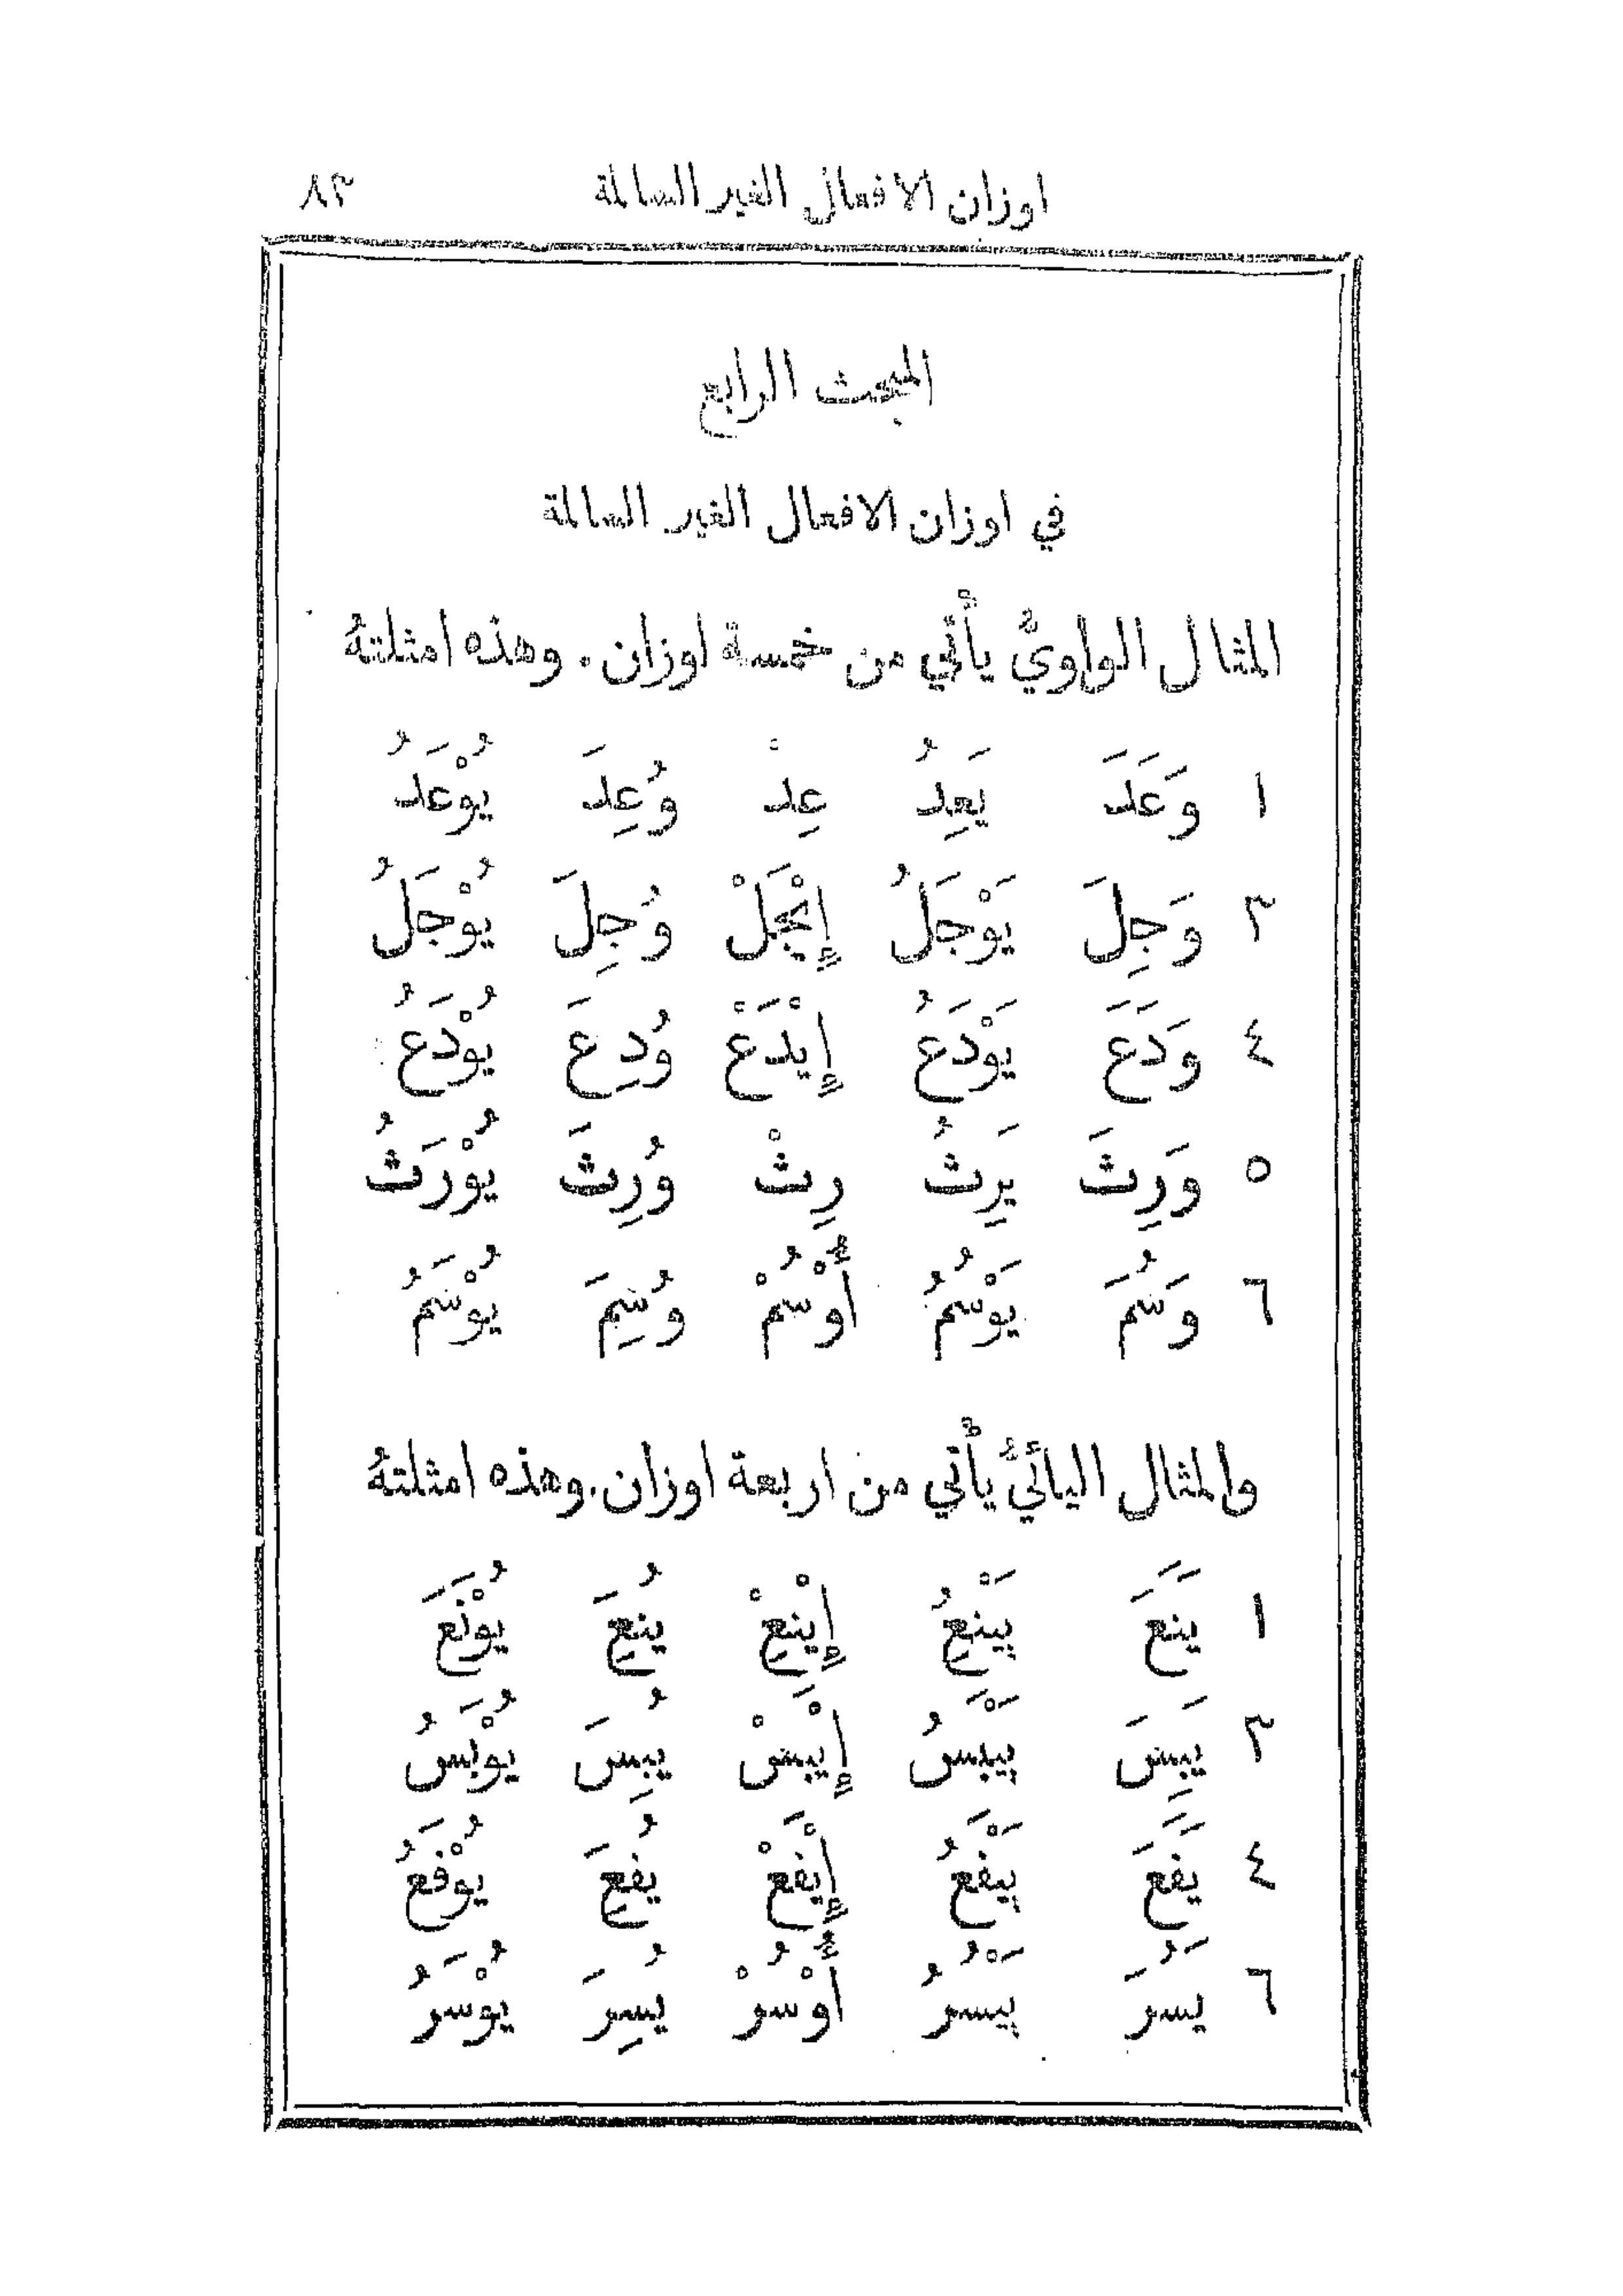 اوزان الافعال الغير السالمة ٨٣
المبحث الرابع
في اوزان الافعال الغير السالمة
المثال الواويُّ يأْتي من خمسة اوزان. وهذه امثلتهُ
١ وَعَدَ يَعِدُ عِدْ وُعِدَ يُوْعَدُ
٣ وَجِلَ يَوْجَلُ إِيْجَلْ وُجِلَ يُوْجَلُ
٤ وَدَعَ يَوْدَعُ إِيْدَعْ وُدِعَ يُوْدَعُ
٥ وَرِثَ يَرِثُ رِثْ وُرِثَ يُوْرَثُ
٦ وَسُمَ يَوْسُمُ أُوْسُمْ وُسِمَ يُوْسَمُ
والمثال اليائيُّ يأْتي من اربعة اوزان. وهذه امثلتهُ
١ يَنَعَ يَيْنِعُ إِيْنِعْ يُنِعَ يُوْنَعَ
٣ يَبِسَ يَيْبَسُ إِيْبَسْ يُبِسَ يُوْبَسُ
٤ يَفَعَ يَيْفَعُ إِيْفَعْ يُفِعَ يُوْفَعُ
٦ يَسُرَ يَيْسُرُ أُوْسُرْ يُسِرَ يُوْسَرُ